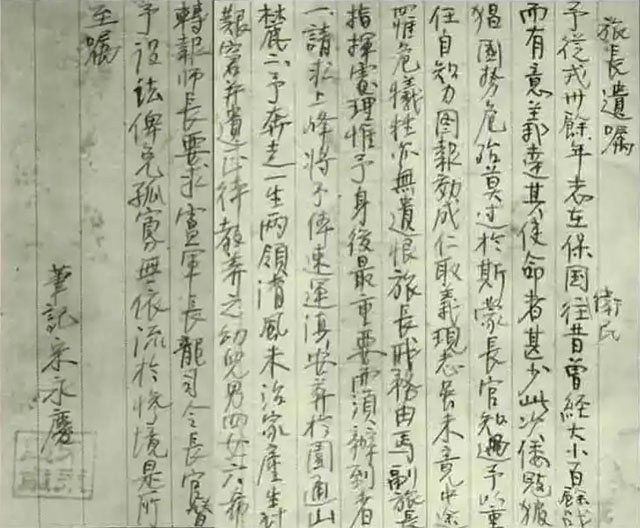 旅長遺嘱
予從戎卅餘年志在保国衛民往昔曾経大小百餘战
而有意義達其使命者甚少此次倭賊猖
獗国势危殆莫过於斯蒙長官知遇予以重
任自竭力图報効成仁取義現志未竟中途
罹危犧牲亦無遺恨旅長职務由馬副旅長
指揮處理惟予身後最重要而須辦到者
一、請求上峰將予傳速運滇安葬於圓通山
麓二、予奔走一生两領清風未治家產生計
艱窘并遺正待教养之幼兒男四女六希
轉報师長要求盧军長龍司令長官替
予设法俾免孤寡無依流於悦境是所
至嘱
筆記宋永慶